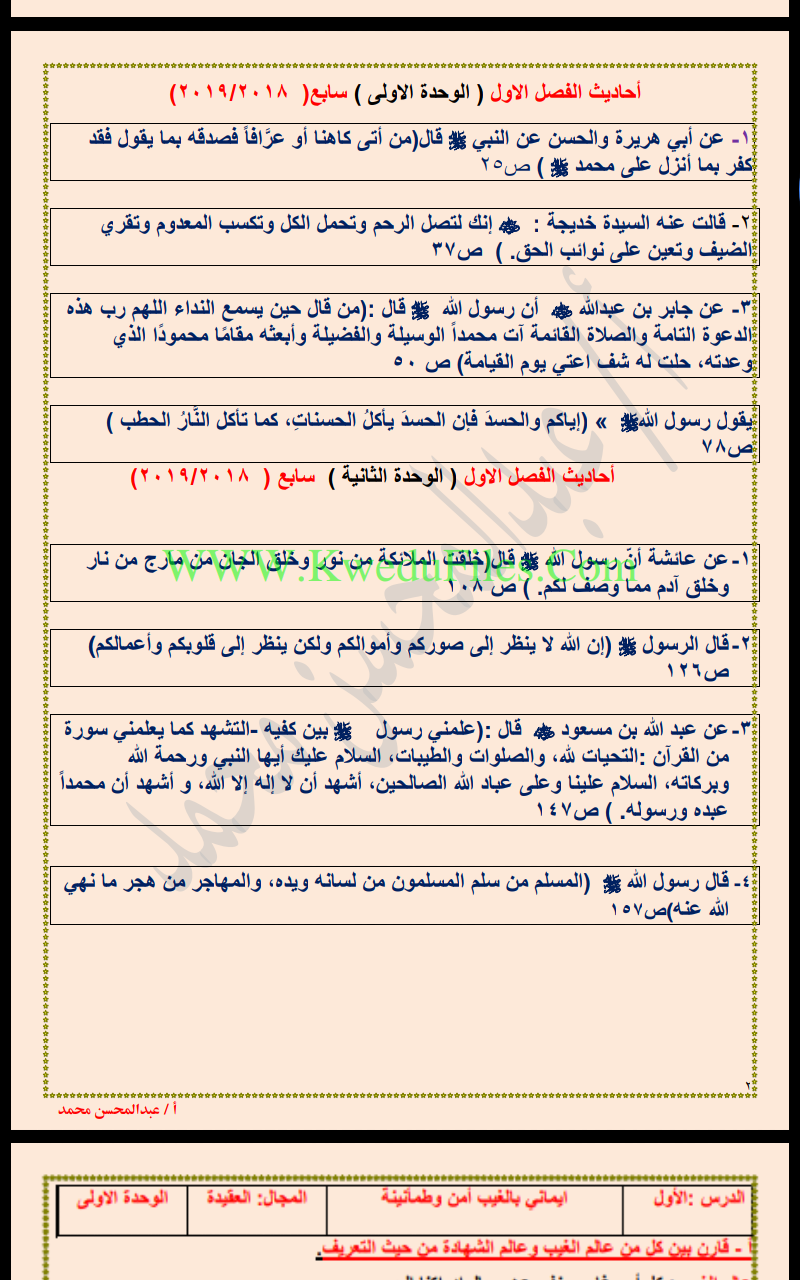 أحاديث الفصل الاول ( الوحدة الاولى ) سابع( ٢٠١٩/٢٠١٨)
١- عن أبي هريرة والحسن عن النبي ﷺ قال(من أتى كاهنا أو عرَّافاً فصدقه بما يقول فقد
كفر بما أنزل على محمد ﷺ ) ص٢٥
٢- قالت عنه السيدة خديجة : إنك لتصل الرحم وتحمل الكل وتكسب المعدوم وتقري
الضيف وتعين على نوائب الحق. ) ص٣٧
٣- عن جابر بن عبدالله أن رسول الله ﷺ قال :(من قال حين يسمع النداء اللهم رب هذه
الدعوة التامة والصلاة القائمة آت محمداً الوسيلة والفضيلة وأبعثه مقامًا محمودًا الذي
وعدته، حلت له شف اعتي يوم القيامة) ص ٥٠
يقول رسول اللهﷺ » (إياكم والحسدَ فإن الحسدَ يأكلُ الحسناتِ، كما تأكل النَّارُ الحطب )
ص٧٨
أحاديث الفصل الاول ( الوحدة الثانية ) سابع ( ٢٠١٩/٢٠١٨)
١- عن عائشة أنّ رسول الله ﷺ قال(خلقت الملائكة من نور وخلق الجان من مارج من نار
وخلق آدم مما وصف لكم. ) ص ١٠٨
WWW.KweduFiles.Com
٢- قال الرسول ﷺ (إن الله لا ينظر إلى صوركم وأموالكم ولكن ينظر إلى قلوبكم وأعمالكم)
ص١٢٦
٣- عن عبد الله بن مسعود قال :(علمني رسول ﷺ بين كفيه -التشهد كما يعلمني سورة
من القرآن :التحيات لله، والصلوات والطيبات، السلام عليك أيها النبي ورحمة الله
وبركاته، السلام علينا وعلى عباد الله الصالحين، أشهد أن لا إله إلا الله، و أشهد أن محمداً
عبده ورسوله. ) ص١٤٧
٤- قال رسول الله ﷺ (المسلم من سلم المسلمون من لسانه ويده، والمهاجر من هجر ما نهي
الله عنه)ص١٥٧
أ/ عبدالمحسن محمد
٢
أ / عبدالمحسن محمد
الدرس :الأول ايماني بالغيب أمن وطمأنينة المجال: العقيدة الوحدة الاولى
أ - قارن بين كل من عالم الغيب وعالم الشهادة من حيث التعريف.